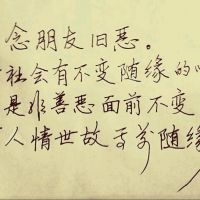 念朋友旧恶。
社会有不变随缘的
是非善恶面前不变
人情世故 随缘